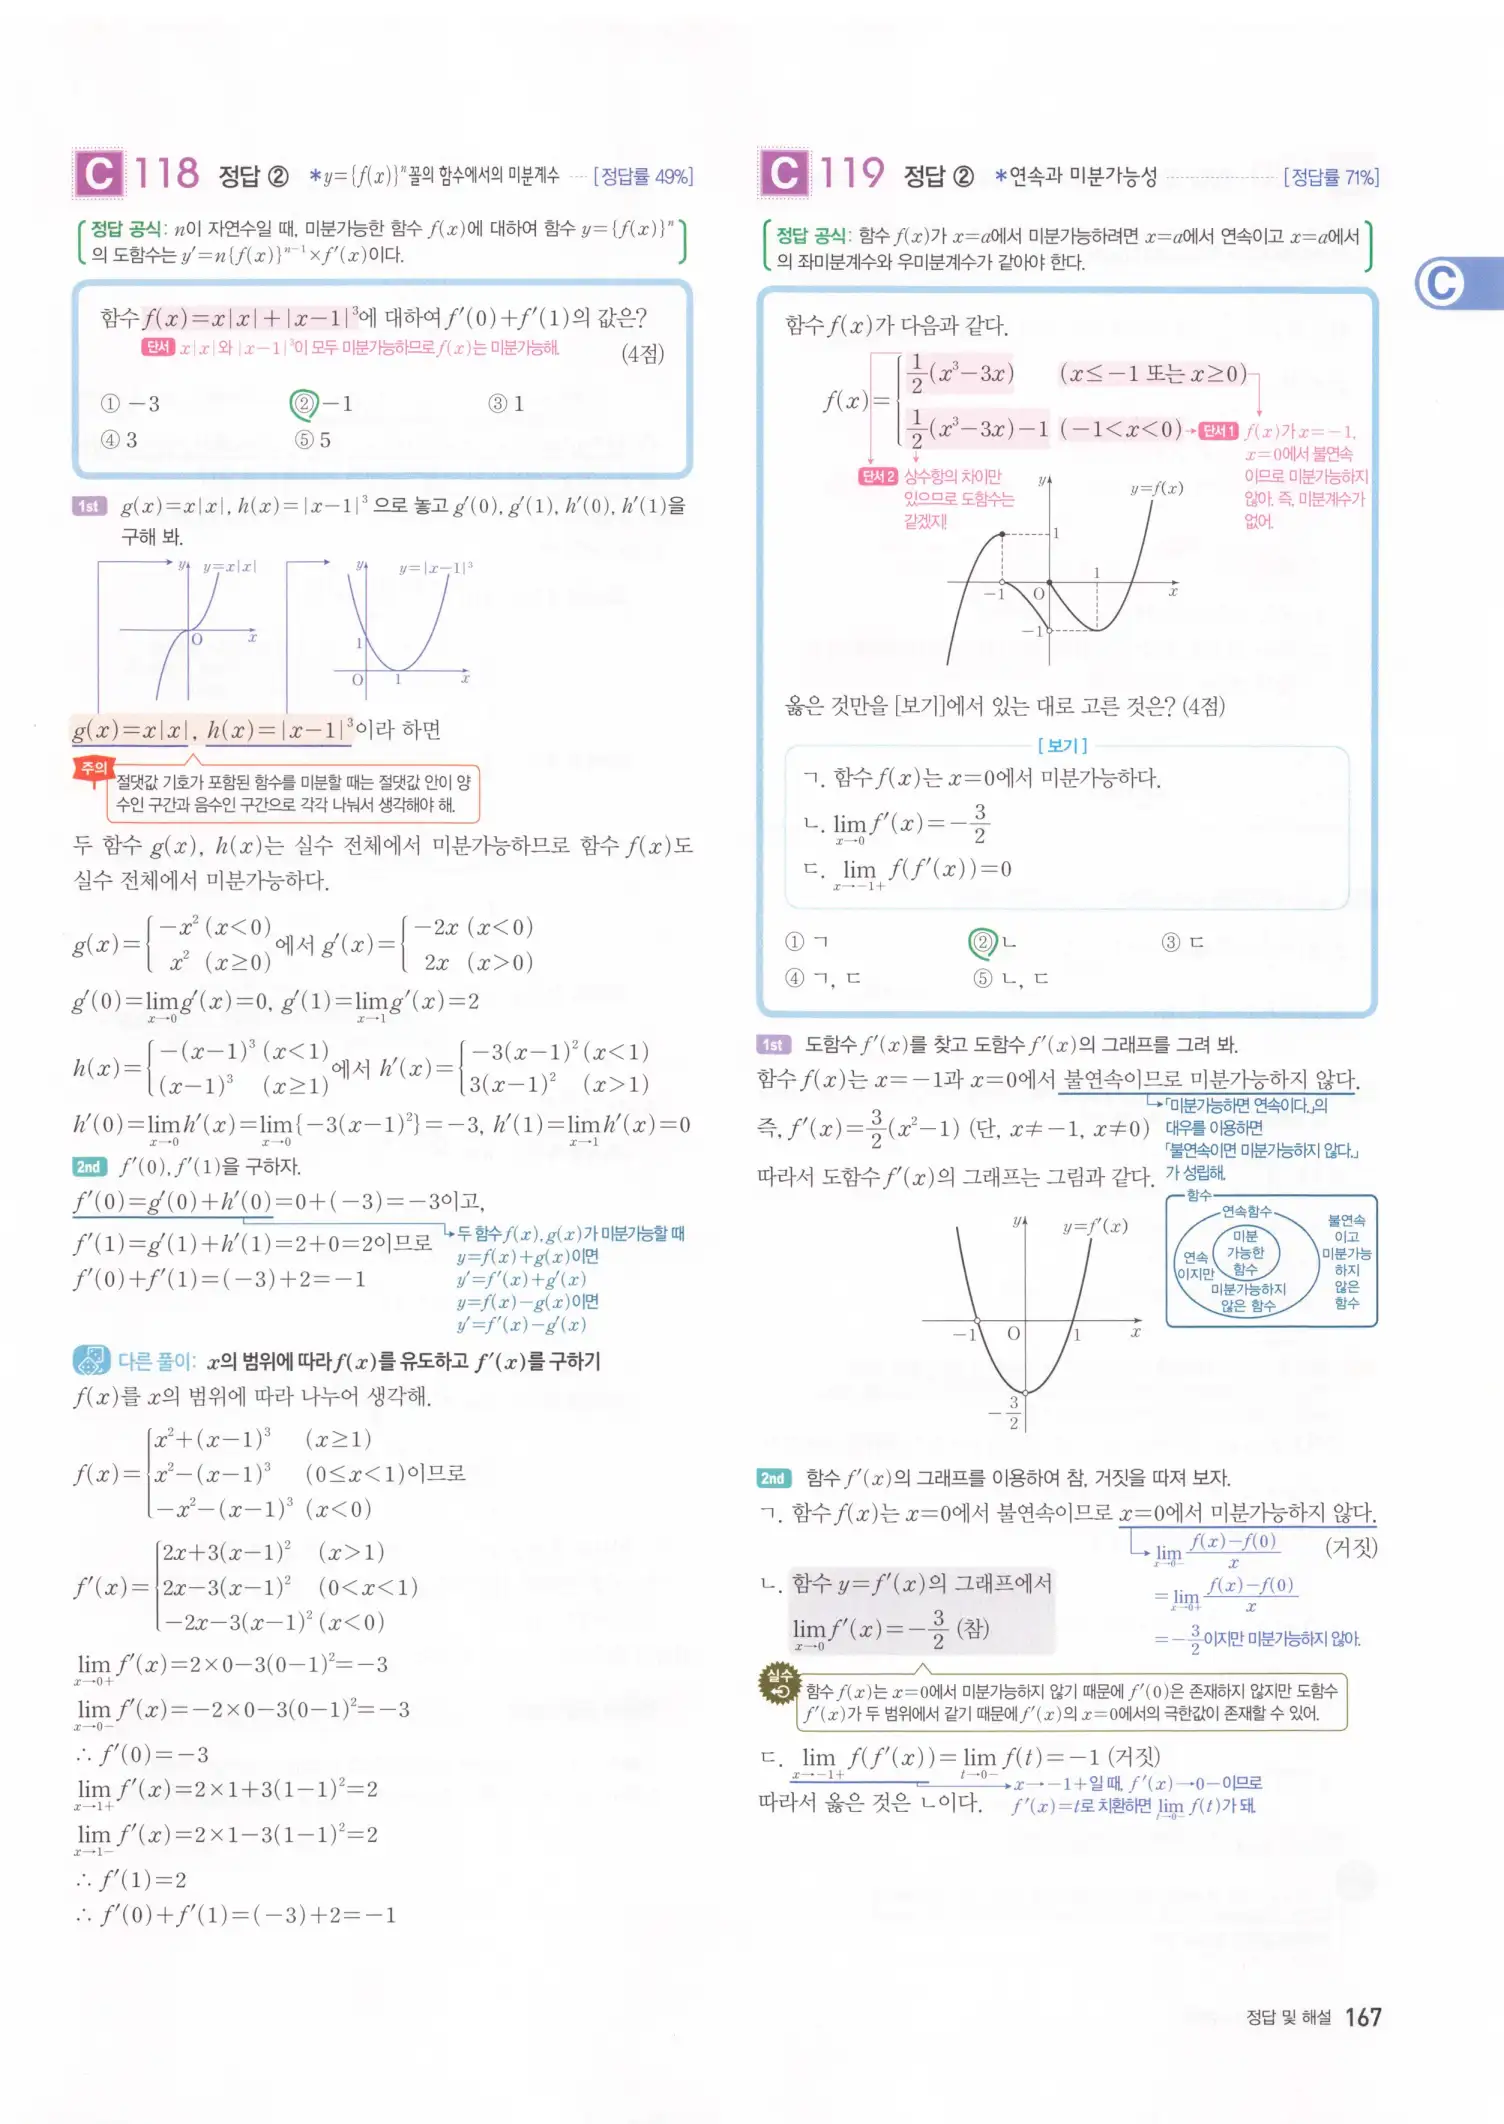 C 118 정답 ② *y={f(x)}ⁿ꼴의 함수에서의 미분계수 ···· [정답률 49%]
정답 공식: n이 자연수일 때, 미분가능한 함수 f(x)에 대하여 함수 y={f(x)}ⁿ
의 도함수는 y′=n{f(x)}ⁿ⁻¹×f′(x)이다.
함수 f(x)=x|x|+|x-1|³에 대하여 f′(0)+f′(1)의 값은?
단서 x|x|와 |x-1|³이 모두 미분가능하므로 f(x)는 미분가능해.
(4점)
① -3 ② -1 ③ 1
④ 3 ⑤ 5
1st g(x)=x|x|, h(x)=|x-1|³으로 놓고 g′(0), g′(1), h′(0), h′(1)을
구해 봐.
y y=x|x| O x
y y=|x-1|³ 1 O 1 x
g(x)=x|x|, h(x)=|x-1|³이라 하면
주의 절댓값 기호가 포함된 함수를 미분할 때는 절댓값 안이 양
수인 구간과 음수인 구간으로 각각 나눠서 생각해야 해.
두 함수 g(x), h(x)는 실수 전체에서 미분가능하므로 함수 f(x)도
실수 전체에서 미분가능하다.
g(x)={ -x² (x<0) / x² (x≥0) 에서 g′(x)={ -2x (x<0) / 2x (x>0)
g′(0)=lim_{x→0} g′(x)=0, g′(1)=lim_{x→1} g′(x)=2
h(x)={ -(x-1)³ (x<1) / (x-1)³ (x≥1) 에서 h′(x)={ -3(x-1)² (x<1) / 3(x-1)² (x>1)
h′(0)=lim_{x→0} h′(x)=lim_{x→0} {-3(x-1)²}=-3, h′(1)=lim_{x→1} h′(x)=0
2nd f′(0), f′(1)을 구하자.
f′(0)=g′(0)+h′(0)=0+(-3)=-3이고,
f′(1)=g′(1)+h′(1)=2+0=2이므로
f′(0)+f′(1)=(-3)+2=-1
두 함수 f(x), g(x)가 미분가능할 때
y=f(x)+g(x)이면
y′=f′(x)+g′(x)
y=f(x)-g(x)이면
y′=f′(x)-g′(x)
다른 풀이: x의 범위에 따라 f(x)를 유도하고 f′(x)를 구하기
f(x)를 x의 범위에 따라 나누어 생각해.
f(x)={ x²+(x-1)³ (x≥1) / x²-(x-1)³ (0≤x<1) / -x²-(x-1)³ (x<0) 이므로
f′(x)={ 2x+3(x-1)² (x>1) / 2x-3(x-1)² (0<x<1) / -2x-3(x-1)² (x<0)
lim_{x→0+} f′(x)=2×0-3(0-1)²=-3
lim_{x→0-} f′(x)=-2×0-3(0-1)²=-3
∴ f′(0)=-3
lim_{x→1+} f′(x)=2×1+3(1-1)²=2
lim_{x→1-} f′(x)=2×1-3(1-1)²=2
∴ f′(1)=2
∴ f′(0)+f′(1)=(-3)+2=-1
C 119 정답 ② *연속과 미분가능성 ···· [정답률 71%]
정답 공식: 함수 f(x)가 x=a에서 미분가능하려면 x=a에서 연속이고 x=a에서
의 좌미분계수와 우미분계수가 같아야 한다.
C
함수 f(x)가 다음과 같다.
f(x)={ 1/2(x³-3x) (x≤-1 또는 x≥0) / 1/2(x³-3x)-1 (-1<x<0)
단서1 f(x)가 x=-1,
x=0에서 불연속
이므로 미분가능하지
않아. 즉, 미분계수가
없어.
단서2 상수항의 차이만
있으므로 도함수는
같겠지!
y y=f(x) 1 1 -1 O x -1
옳은 것만을 [보기]에서 있는 대로 고른 것은? (4점)
[보기]
ㄱ. 함수 f(x)는 x=0에서 미분가능하다.
ㄴ. lim_{x→0} f′(x)=-3/2
ㄷ. lim_{x→-1+} f(f′(x))=0
① ㄱ ② ㄴ ③ ㄷ
④ ㄱ, ㄷ ⑤ ㄴ, ㄷ
1st 도함수 f′(x)를 찾고 도함수 f′(x)의 그래프를 그려 봐.
함수 f(x)는 x=-1과 x=0에서 불연속이므로 미분가능하지 않다.
즉, f′(x)=3/2(x²-1) (단, x≠-1, x≠0)
「미분가능하면 연속이다.」의
대우를 이용하면
「불연속이면 미분가능하지 않다.」
가 성립해.
따라서 도함수 f′(x)의 그래프는 그림과 같다.
y y=f′(x) -1 O 1 x -3/2
함수
연속함수
미분
가능한
함수
연속
이지만
미분가능하지
않은 함수
불연속
이고
미분가능
하지
않은
함수
2nd 함수 f′(x)의 그래프를 이용하여 참, 거짓을 따져 보자.
ㄱ. 함수 f(x)는 x=0에서 불연속이므로 x=0에서 미분가능하지 않다.
(거짓)
lim_{x→0-} (f(x)-f(0))/x
=lim_{x→0+} (f(x)-f(0))/x
=-3/2이지만 미분가능하지 않아.
ㄴ. 함수 y=f′(x)의 그래프에서
lim_{x→0} f′(x)=-3/2 (참)
실수 함수 f(x)는 x=0에서 미분가능하지 않기 때문에 f′(0)은 존재하지 않지만 도함수
f′(x)가 두 범위에서 같기 때문에 f′(x)의 x=0에서의 극한값이 존재할 수 있어.
ㄷ. lim_{x→-1+} f(f′(x))=lim_{t→0-} f(t)=-1 (거짓)
x→-1+일 때, f′(x)→0-이므로
f′(x)=t로 치환하면 lim_{t→0-} f(t)가 돼.
따라서 옳은 것은 ㄴ이다.
정답 및 해설 167